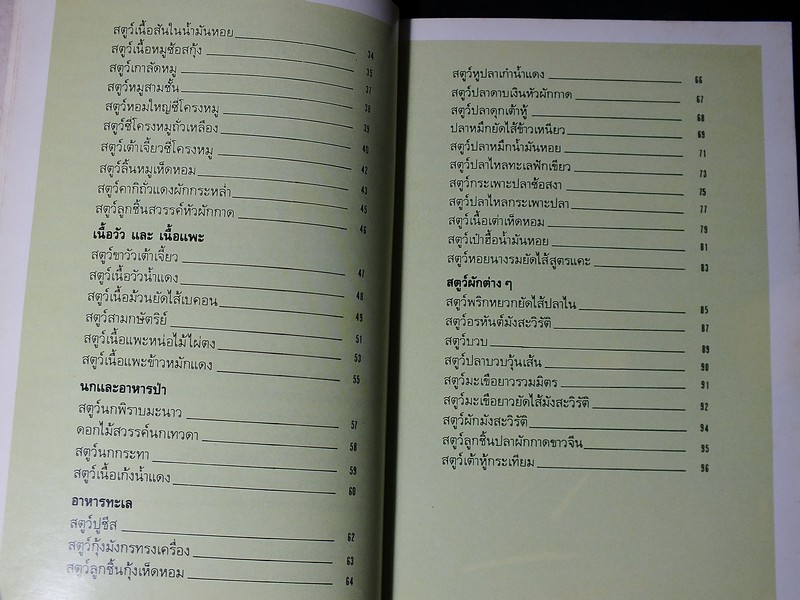 สตูว์เนื้อสันในน้ำมันหอย 34
สตูว์เนื้อหมูซ้อสกุ้ง 35
สตูว์เกาลัดหมู 37
สตูว์หมูสามชั้น 38
สตูว์หอมใหญ่ซี่โครงหมู 39
สตูว์ซี่โครงหมูถั่วเหลือง 40
สตูว์เต้าเจี้ยวซี่โครงหมู 42
สตูว์ลิ้นหมูเห็ดหอม 43
สตูว์คากิถั่วแดงผักกระหล่ำ 45
สตูว์ลูกชิ้นสวรรค์หัวผักกาด 46
เนื้อวัว และ เนื้อแพะ
สตูว์ขาวัวเต้าเจี้ยว 47
สตูว์เนื้อวัวน้ำแดง 48
สตูว์เนื้อม้วนยัดไส้เบคอน 49
สตูว์สามกษัตริย์ 51
สตูว์เนื้อแพะหน่อไม้ไผ่ตง 53
สตูว์เนื้อแพะข้าวหมักแดง 55
นกและอาหารป่า
สตูว์นกพิราบมะนาว 57
ดอกไม้สวรรค์นกเทวดา 58
สตูว์นกกระทา 59
สตูว์เนื้อเก้งน้ำแดง 60
อาหารทะเล
สตูว์ปูชีส 62
สตูว์กุ้งมังกรทรงเครื่อง 63
สตูว์ลูกชิ้นกุ้งเห็ดหอม 64
สตูว์หูปลาเก๋าน้ำแดง 66
สตูว์ปลาดาบเงินหัวผักกาด 67
สตูว์ปลาดุกเต้าหู้ 68
ปลาหมึกยัดไส้ข้าวเหนียว 69
สตูว์ปลาหมึกน้ำมันหอย 71
สตูว์ปลาไหลทะเลฟักเขียว 73
สตูว์กระเพาะปลาซ้อสงา 75
สตูว์ปลาไหลกระเพาะปลา 77
สตูว์เนื้อเต่าเห็ดหอม 79
สตูว์เป๋าฮื้อน้ำมันหอย 81
สตูว์หอยนางรมยัดไส้สูตรแคะ 83
สตูว์ผักต่าง ๆ
สตูว์พริกหยวกยัดไส้ปลาไน 85
สตูว์อรหันต์มังสะวิรัติ 87
สตูว์บวบ 89
สตูว์ปลาบวบวุ้นเส้น 90
สตูว์มะเขือยาวรวมมิตร 91
สตูว์มะเขือยาวยัดไส้มังสะวิรัติ 92
สตูว์ผักมังสะวิรัติ 94
สตูว์ลูกชิ้นปลาผักกาดขาวจีน 95
สตูว์เต้าหู้กระเทียม 96